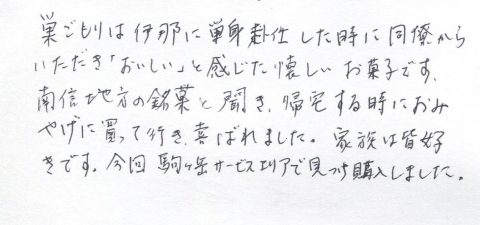 巣ごもりは伊那に単身赴任した時に同僚から
いただき「おいしい」と感じた懐しいお菓子です、
南信地方の銘菓と聞き、帰宅する時におみ
やげに買って行き、喜ばれました。家族は皆好
きです。今回駒ヶ岳サービスエリアで見つけ購入しました。